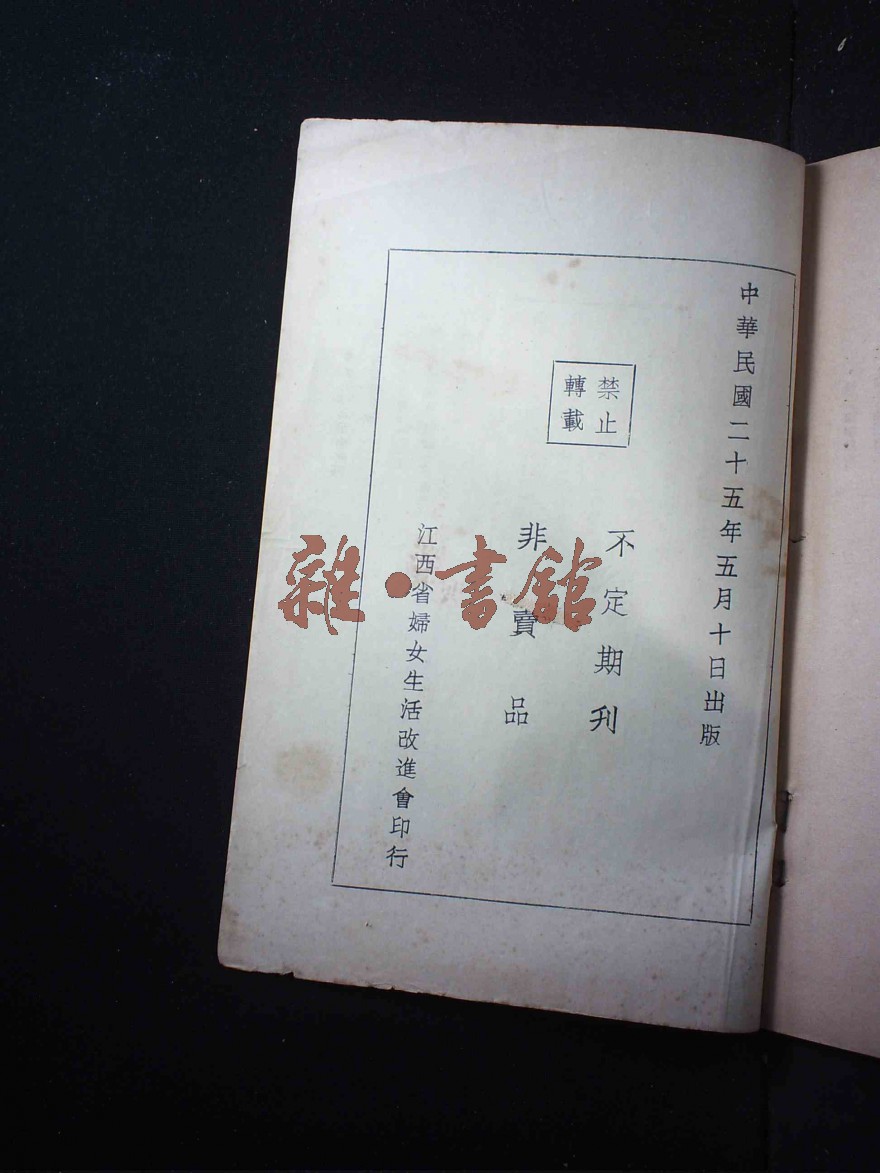 中華民國二十五年五月十日出版
禁止
轉載
不定期刋
非賣品
江西省婦女生活改進會印行
雜·書館